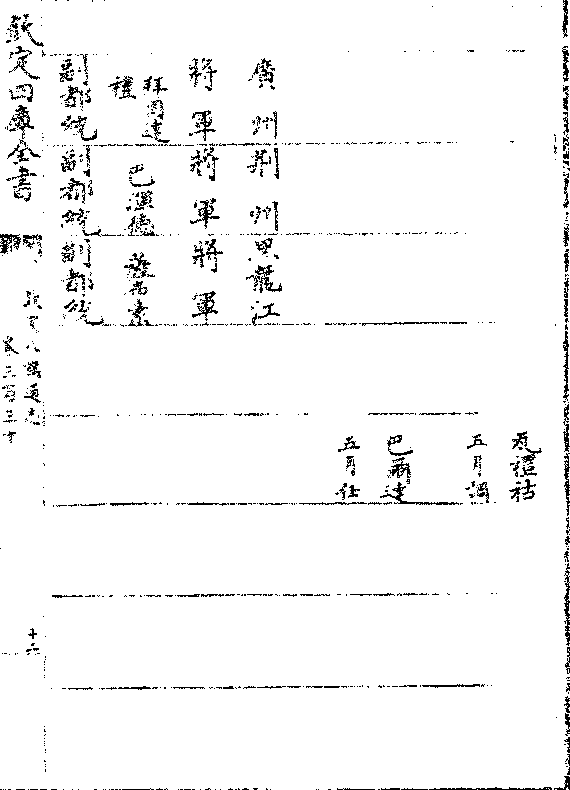 瓦禮祜
五月調
巴爾達
五月任
廣州
將軍
拜達
禮
副都統
荆州
將軍
巴渾德
副都統
黑龍江
將軍
薩布素
副都統
欽定四庫全書
欽定八旗通志
卷三百三十
十六